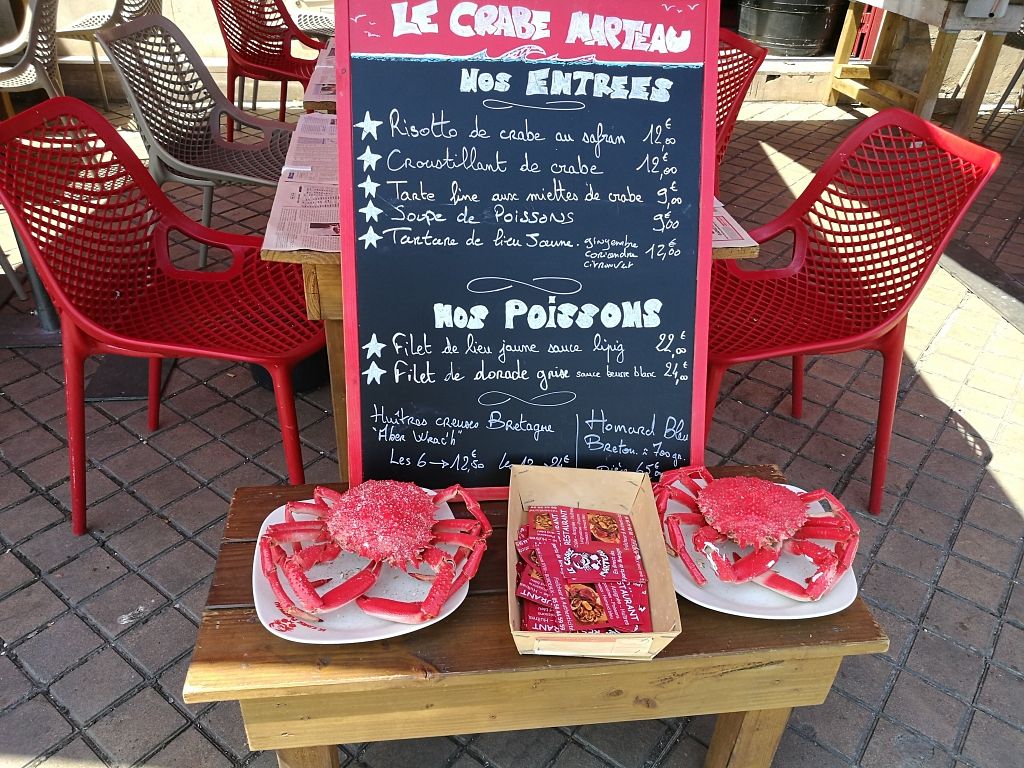 LE CRABE MARTEAU
NOS ENTREES
Risotto de crabe au safran 12,00€
Croustillant de crabe 12,00€
Tarte fine aux miettes de crabe 9,00€
Soupe de Poissons 9,00€
Tartare de lieu Jaune. gingembre 12,00€
coriandre
citronvert
NOS POISSONS
Filet de lieu jaune sauce lipig 22,00€
Filet de dorade grise sauce beurre blanc 24,00€
Huîtres creuses Bretagne
"Aber Wrac'h"
Les 6 → 12,50€
Homard Bleu
Breton : 700gr.
RESTAURANT
LE CRABE
MARTEAU